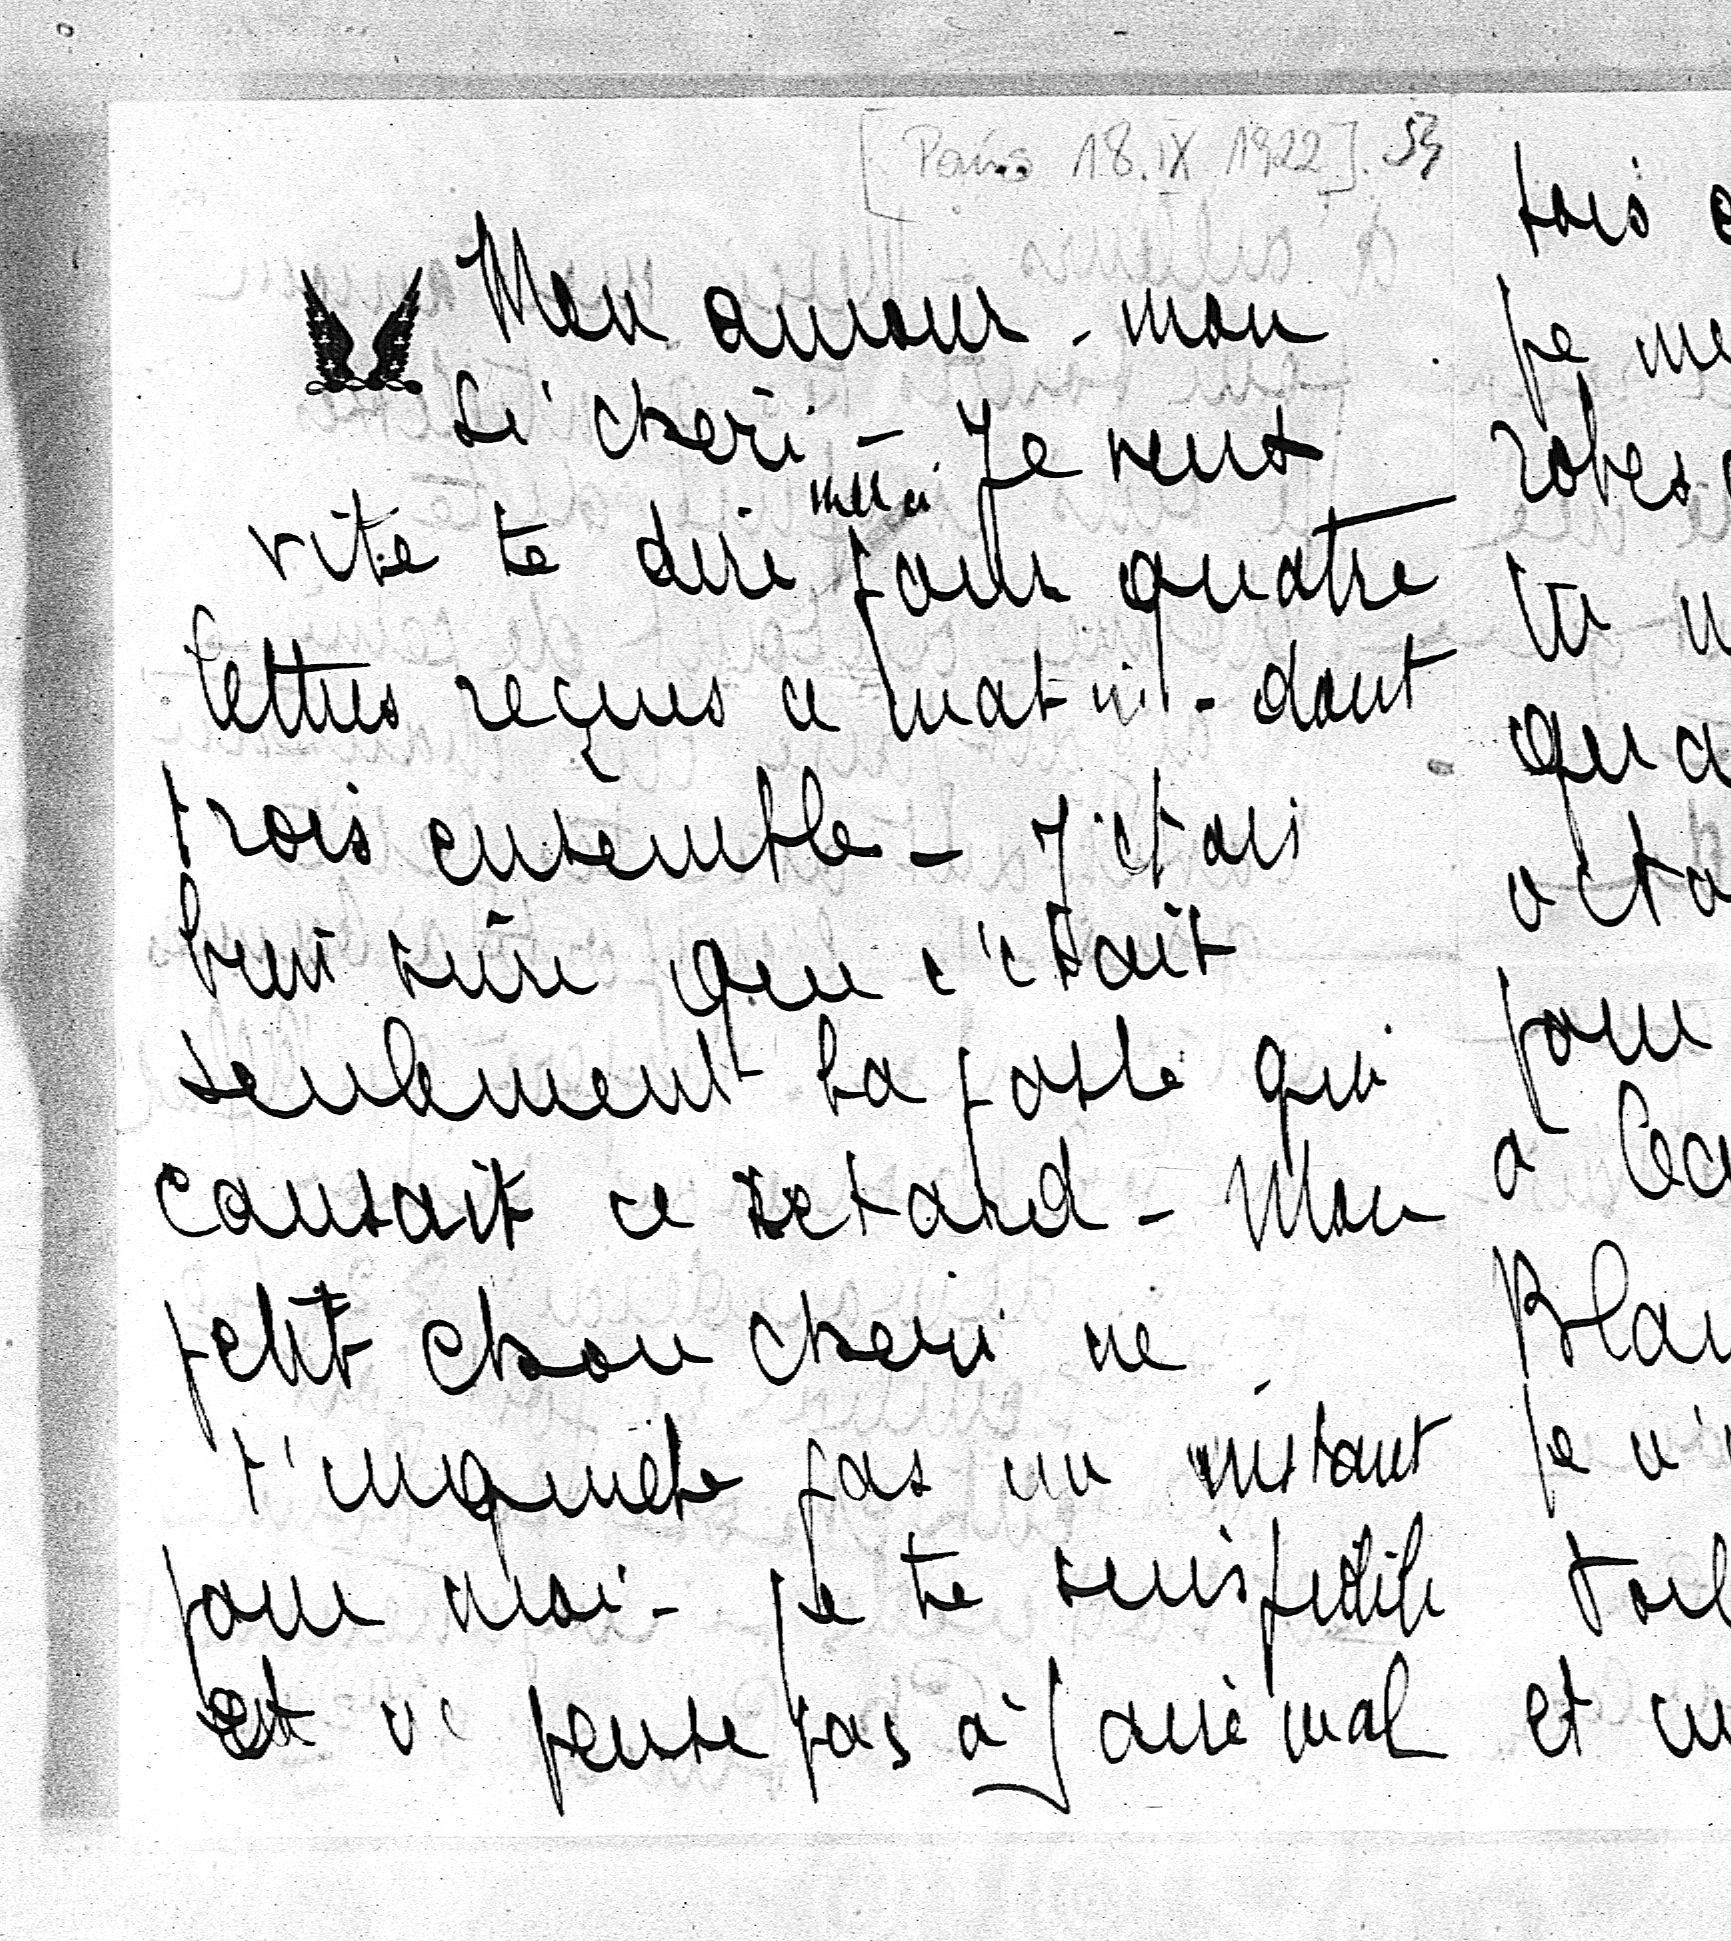 [Paris 18.IX 1922]. 54
Mon amour - mon
si cheri - Je veux
merci
vite te dire pour quatre
lettres reçues ce matin - dont
trois ensemble - J'étais
bien sûre que c'était
seulement la poste qui
causait ce retard - Mon
petit chou cheri ne
t'inquiète pas un instant
pour moi - je te suis fidèle
et ne pense pas à faire mal
fois
je me
robes
tu
qua
acta
pour
à
Blan
je n'
et